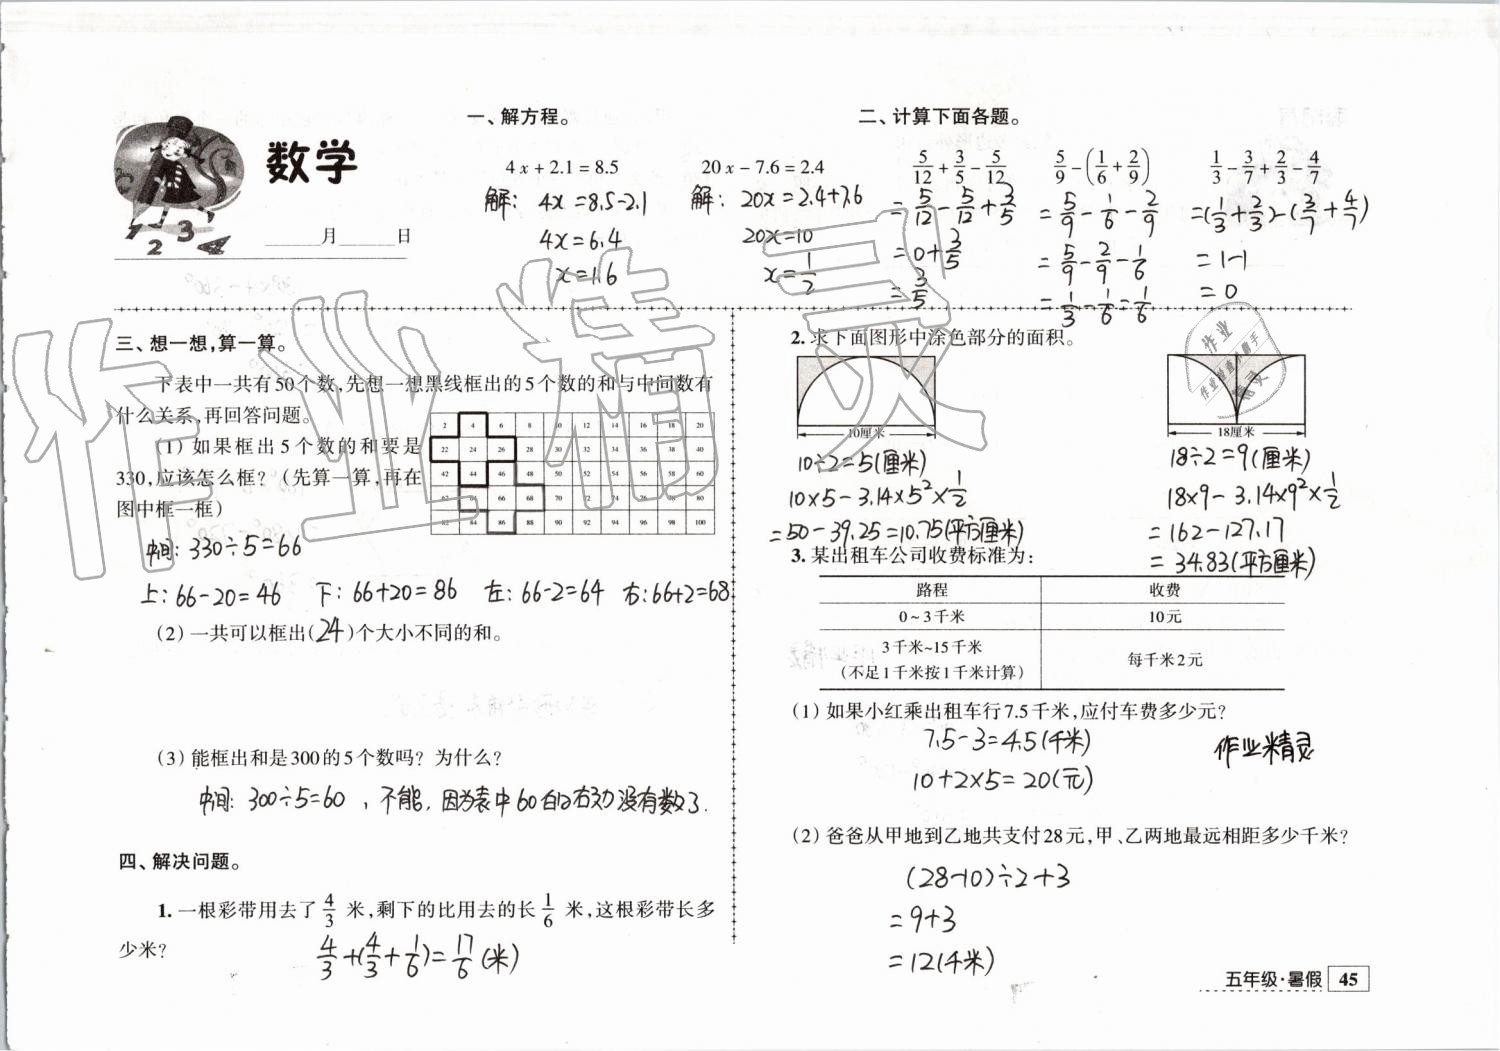 数学
______月______日
一、解方程。
4x+2.1=8.5
解: 4x=8.5-2.1
4x=6.4
x=1.6
20x-7.6=2.4
解: 20x=2.4+7.6
20x=10
x=1/2
二、计算下面各题。
5/12+3/5-5/12
=5/12-5/12+3/5
=0+3/5
=3/5
5/9-(1/6+2/9)
=5/9-1/6-2/9
=5/9-2/9-1/6
=1/3-1/6=1/6
1/3-3/7+2/3-4/7
=(1/3+2/3)-(3/7+4/7)
=1-1
=0
三、想一想,算一算。
下表中一共有50个数,先想一想黑线框出的5个数的和与中间数有
什么关系,再回答问题。
(1) 如果框出5个数的和要是
330,应该怎么框？(先算一算,再在
图中框一框)
2 4 6 8 10 12 14 16 18 20
22 24 26 28 30 32 34 36 38 40
42 44 46 48 50 52 54 56 58 60
62 64 66 68 70 72 74 76 78 80
82 84 86 88 90 92 94 96 98 100
中间: 330÷5=66
上: 66-20=46 下: 66+20=86 左: 66-2=64 右: 66+2=68
(2) 一共可以框出(24)个大小不同的和。
(3) 能框出和是300的5个数吗？为什么？
中间: 300÷5=60 , 不能, 因为表中60的右边没有数了.
四、解决问题。
1. 一根彩带用去了4/3米,剩下的比用去的长1/6米,这根彩带长多
少米？
4/3+(4/3+1/6)=17/6(米)
2. 求下面图形中涂色部分的面积。
10厘米
10÷2=5(厘米)
10×5-3.14×5²×1/2
=50-39.25=10.75(平方厘米)
18厘米
18÷2=9(厘米)
18×9-3.14×9²×1/2
=162-127.17
=34.83(平方厘米)
3. 某出租车公司收费标准为:
路程 收费
0~3千米 10元
3千米~15千米
(不足1千米按1千米计算) 每千米2元
(1) 如果小红乘出租车行7.5千米,应付车费多少元？
7.5-3=4.5(千米)
10+2×5=20(元)
作业精灵
(2) 爸爸从甲地到乙地共支付28元,甲、乙两地最远相距多少千米？
(28-10)÷2+3
=9+3
=12(千米)
五年级·暑假 45
作业精灵
作业
作业检查小助手
精灵